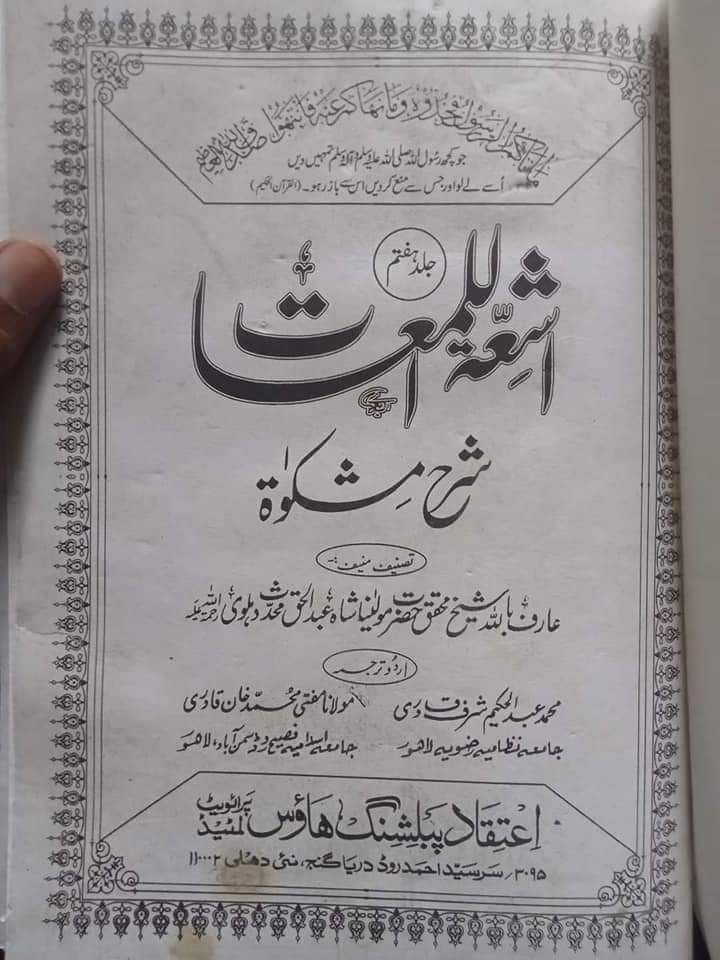 وما اٰتاكم الرسول فخذوه وما نهاكم عنه فانتهوا صدق الله العظيم
جو کچھ رسول اللہ صلی اللہ علیہ وسلم تمہیں دیں
اُسے لے لو اور جس سے منع کر دیں اس سے باز رہو۔ (القرآن الحکیم)
جلد ہفتم
اشعۃ اللمعات
شرح مشکوٰۃ
تصنیف منیف:-
عارف باللہ شیخ محقق حضرت مولٰینا شاہ عبدالحق محدث دہلوی رحمۃ اللہ علیہ
اردو ترجمہ
محمد عبدالحکیم شرف قادری مولانا مفتی محمد خان قادری
جامعہ نظامیہ رضویہ لاہور جامعہ اسلامیہ فصیح روڈ سمن آباد، لاہور
اعتقاد پبلشنگ ھاؤس پرائیویٹ لمٹیڈ
۳۰۹۵/ سر سید احمد روڈ دریا گنج، نئی دھلی ۱۱۰۰۰۲